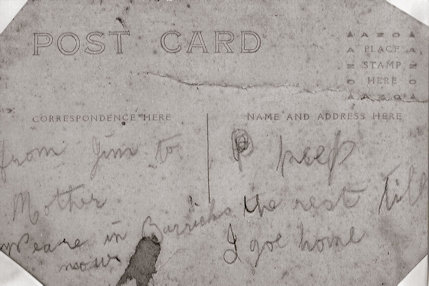 POST CARD
PLACE
STAMP
HERE
CORRESPONDENCE HERE
NAME AND ADDRESS HERE
from Jim to
Mother
in Barricks
now
the rest till
I goe home